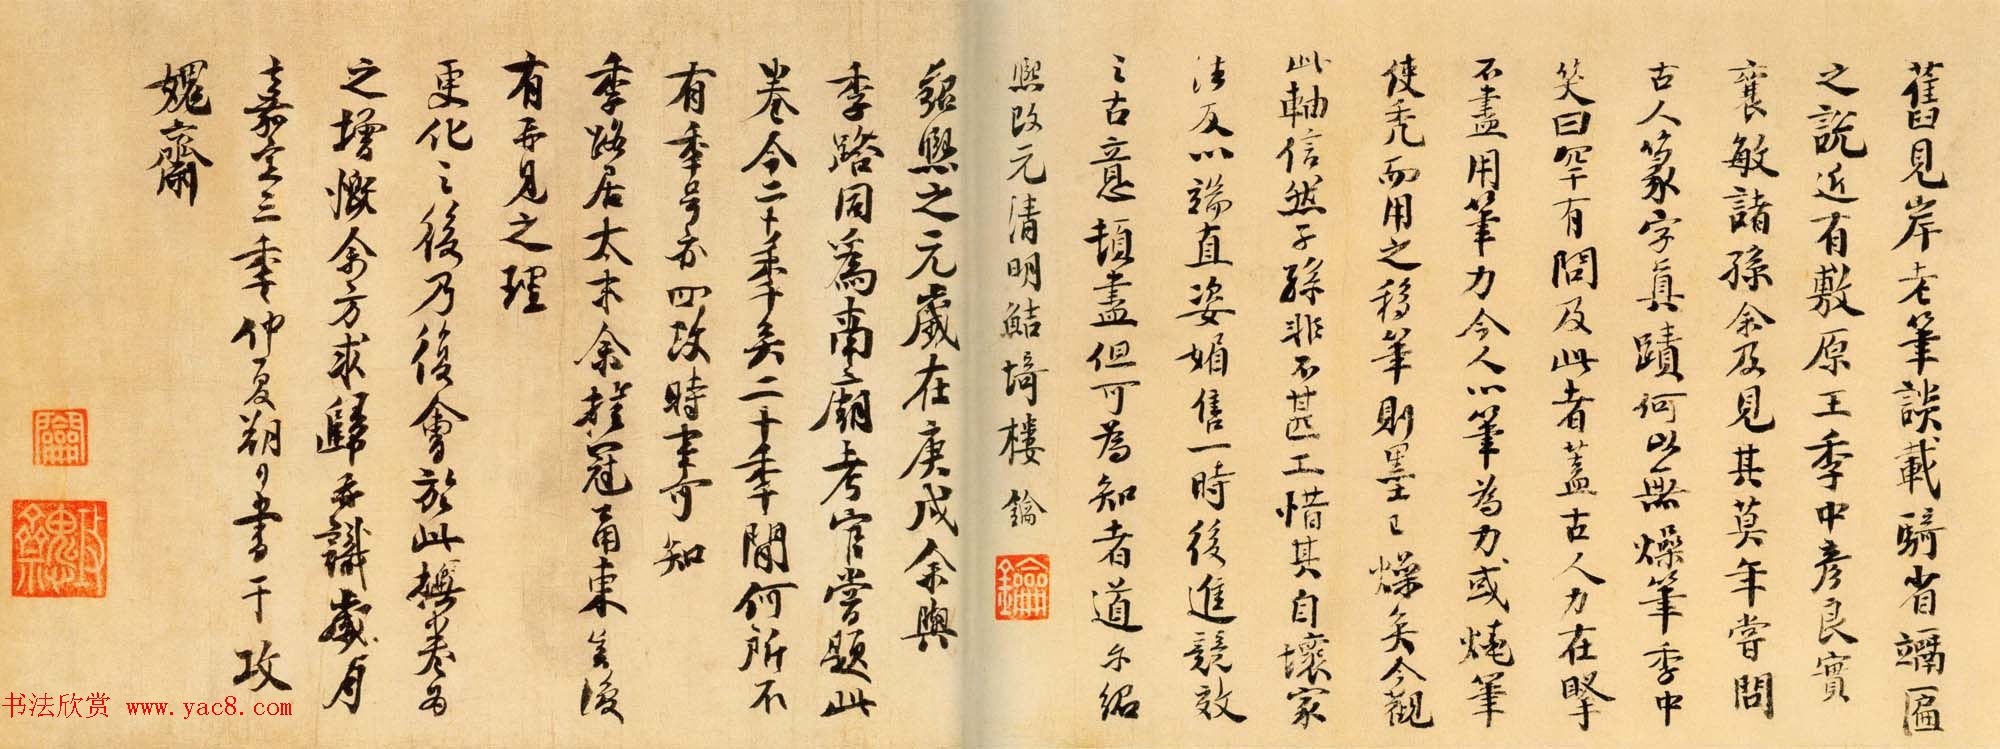 舊見岸老筆談載騎省竵匾
之說近有敷原王季中彥良實
襄敏諸孫余及見其莫年嘗問
古人篆字真蹟何以無燥筆季中
笑曰罕有問及此者蓋古人力在掔
不盡用筆力今人以筆為力或燒筆
使禿而用之移筆則墨已燥矣今觀
此軸信然子孫非不甚工惜其自壞家
法反以端直姿媚售一時後進競效
之古意頓盡但可為知者道尔紹
熙改元清明鮚埼樓鑰
鑰
紹熙之元歲在庚戌余與
季路同為南廟考官嘗題此
卷今二十年矣二十年間何所不
有年号亦四改時事可知
季路居太末余挂冠甬東豈復
有再見之理
更化之後乃復會於此撫卷為
之增慨余方求歸再識歲月
嘉定三年仲夏朔日書于攻
媿齋
鑰
书法欣赏 www.yac8.com